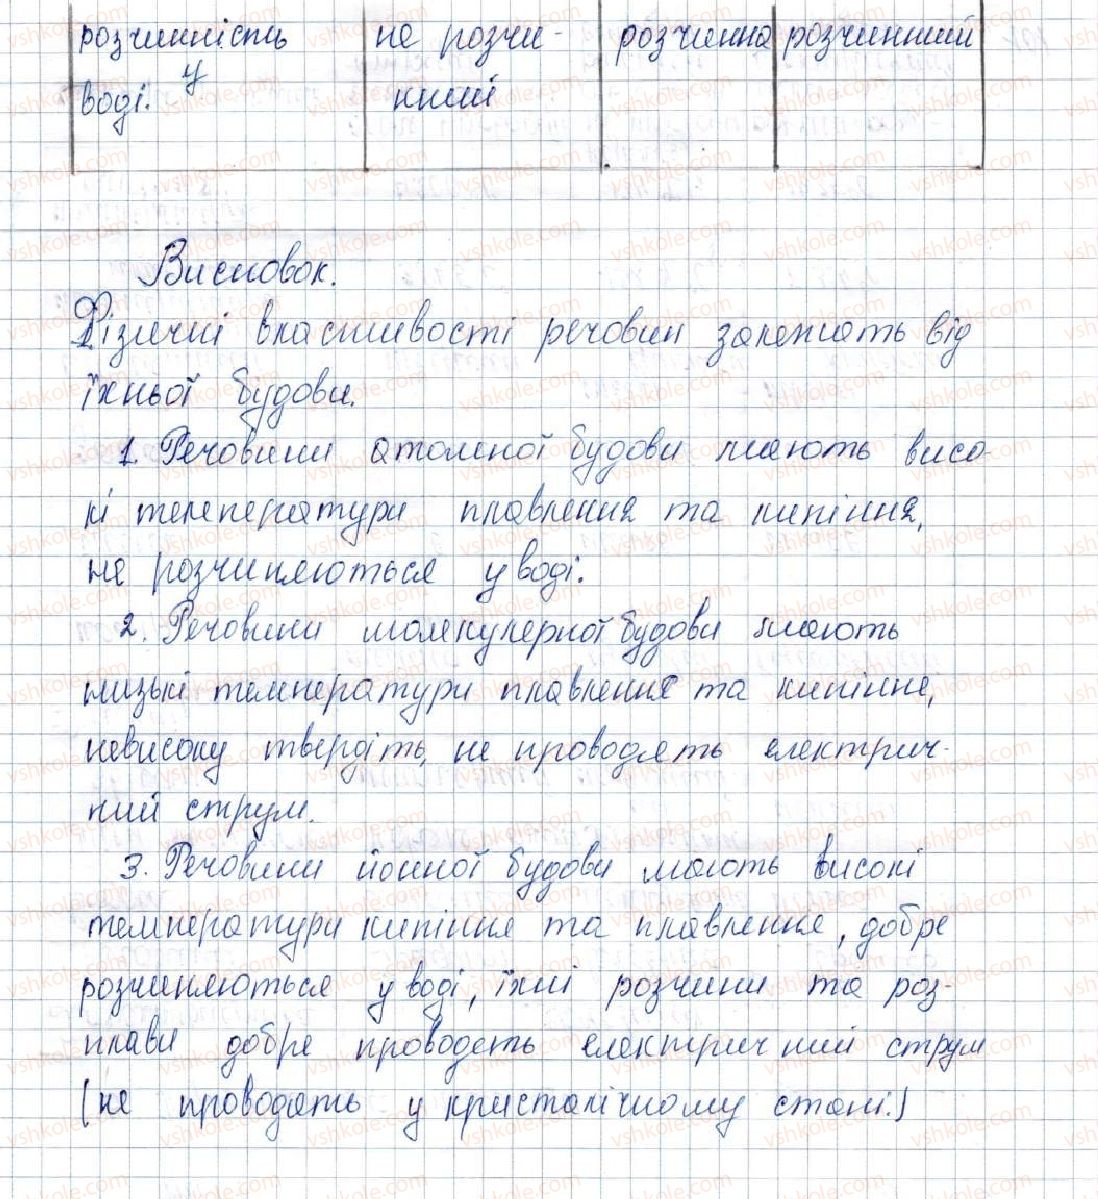 розчинність | не розчи- | розчинна | розчинний
у
воді. | нний
Висновок.
Фізичні властивості речовин залежать від
їхньої будови.
1. Речовини атомної будови мають висо-
кі температури плавлення та кипіння,
не розчиняються у воді.
2. Речовини молекулярної будови мають
низькі температури плавлення та кипіння,
невисоку твердіть, не проводять електрич-
ний струм.
3. Речовини йонної будови мають високі
температури кипіння та плавлення, добре
розчиняються у воді, їхні розчини та роз-
плави добре проводять електричний струм
(не проводять у кристалічному стані.)